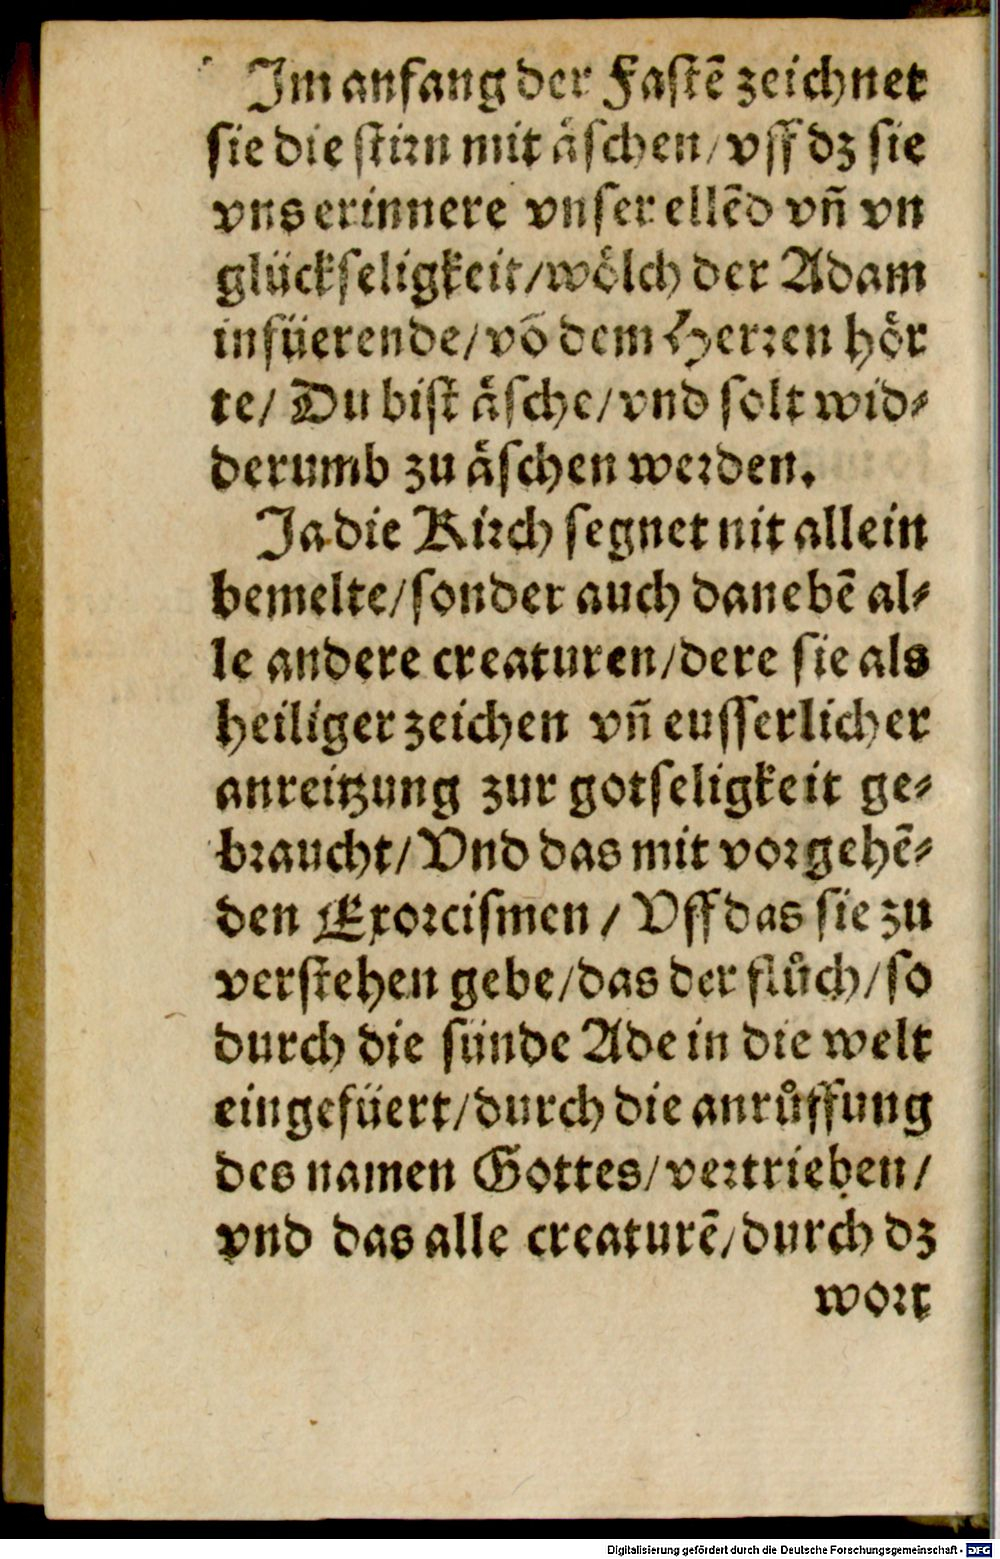 Im anfang der Fastẽ zeichnet
sie die stirn mit äschen/ vff dz sie
vns erinnere vnser ellẽd vñ vn
glückseligkeit/ wölch der Adam
infüerende/ võ dem Herren hör
te/ Du bist äsche/ vnd solt wid⸗
derumb zu äschen werden.
Ja die Kirch segnet nit allein
bemelte/ sonder auch danebẽ al⸗
le andere creaturen/ dere sie als
heiliger zeichen vñ eusserlicher
anreitzung zur gotseligkeit ge⸗
braucht/ Vnd das mit vorgehẽ⸗
den Exorcismen / Vff das sie zu
verstehen gebe/ das der flůch/ so
durch die sünde Ade in die welt
eingefüert/ durch die anrůffung
des namen Gottes/ vertrieben/
vnd das alle creaturẽ/ durch dz
wort
Digitalisierung gefördert durch die Deutsche Forschungsgemeinschaft - DFG